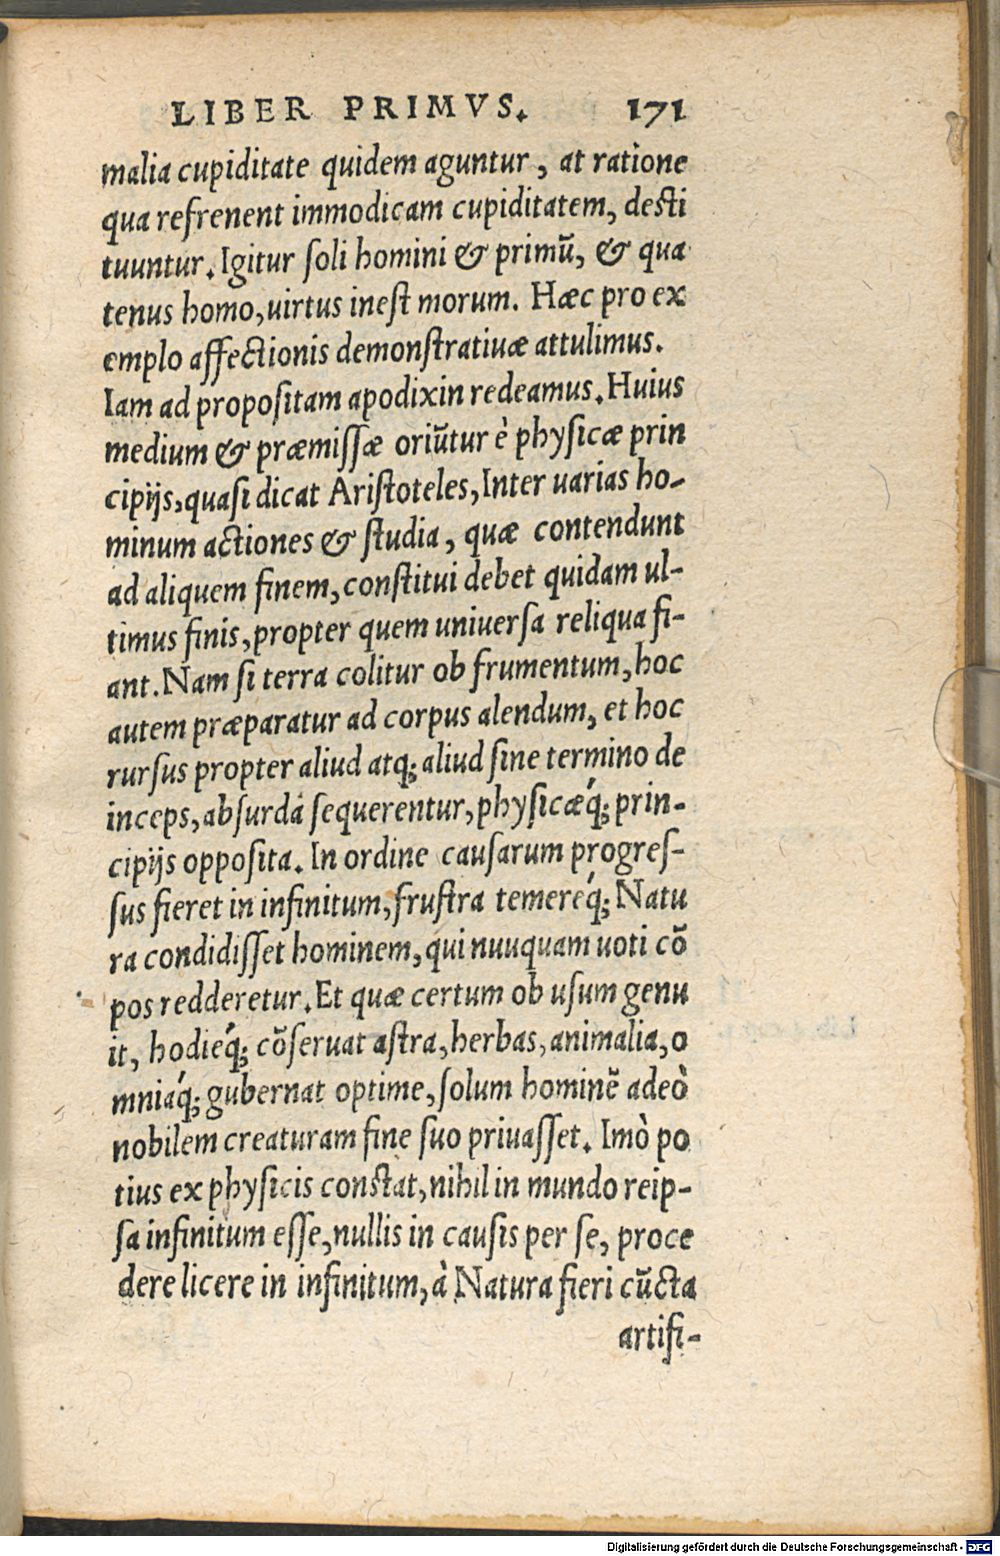 LIBER PRIMVS. 171
malia cupiditate quidem aguntur, at ratione
qua refrenent immodicam cupiditatem, desti
tuuntur. Igitur ſoli homini & primū, & qua
tenus homo, uirtus ineſt morum. Hæc pro ex
emplo affectionis demonſtratiuæ attulimus.
Iam ad propoſitam apodixin redeamus. Huius
medium & præmiſſæ oriūtur è phyſicæ prin
cipijs, quaſi dicat Ariſtoteles, Inter uarias ho-
minum actiones & ſtudia, quæ contendunt
ad aliquem finem, conſtitui debet quidam ul-
timus finis, propter quem uniuerſa reliqua fi-
ant. Nam ſi terra colitur ob frumentum, hoc
autem præparatur ad corpus alendum, et hoc
rurſus propter aliud atq; aliud ſine termino de
inceps, abſurda ſequerentur, phyſicæq́; prin-
cipijs oppoſita. In ordine cauſarum progreſ-
ſus fieret in infinitum, fruſtra temereq́; Natu
ra condidiſſet hominem, qui nuuquam uoti cō
pos redderetur. Et quæ certum ob uſum genu
it, hodieq́; cōſeruat aſtra, herbas, animalia, o
mniaq́; gubernat optime, ſolum hominē adeò
nobilem creaturam fine ſuo priuaſſet. Imò po
tius ex phyſicis conſtat, nihil in mundo reip-
ſa infinitum eſſe, nullis in cauſis per ſe, proce
dere licere in infinitum, à Natura fieri cūcta
artifi-
Digitalisierung gefördert durch die Deutsche Forschungsgemeinschaft - DFG